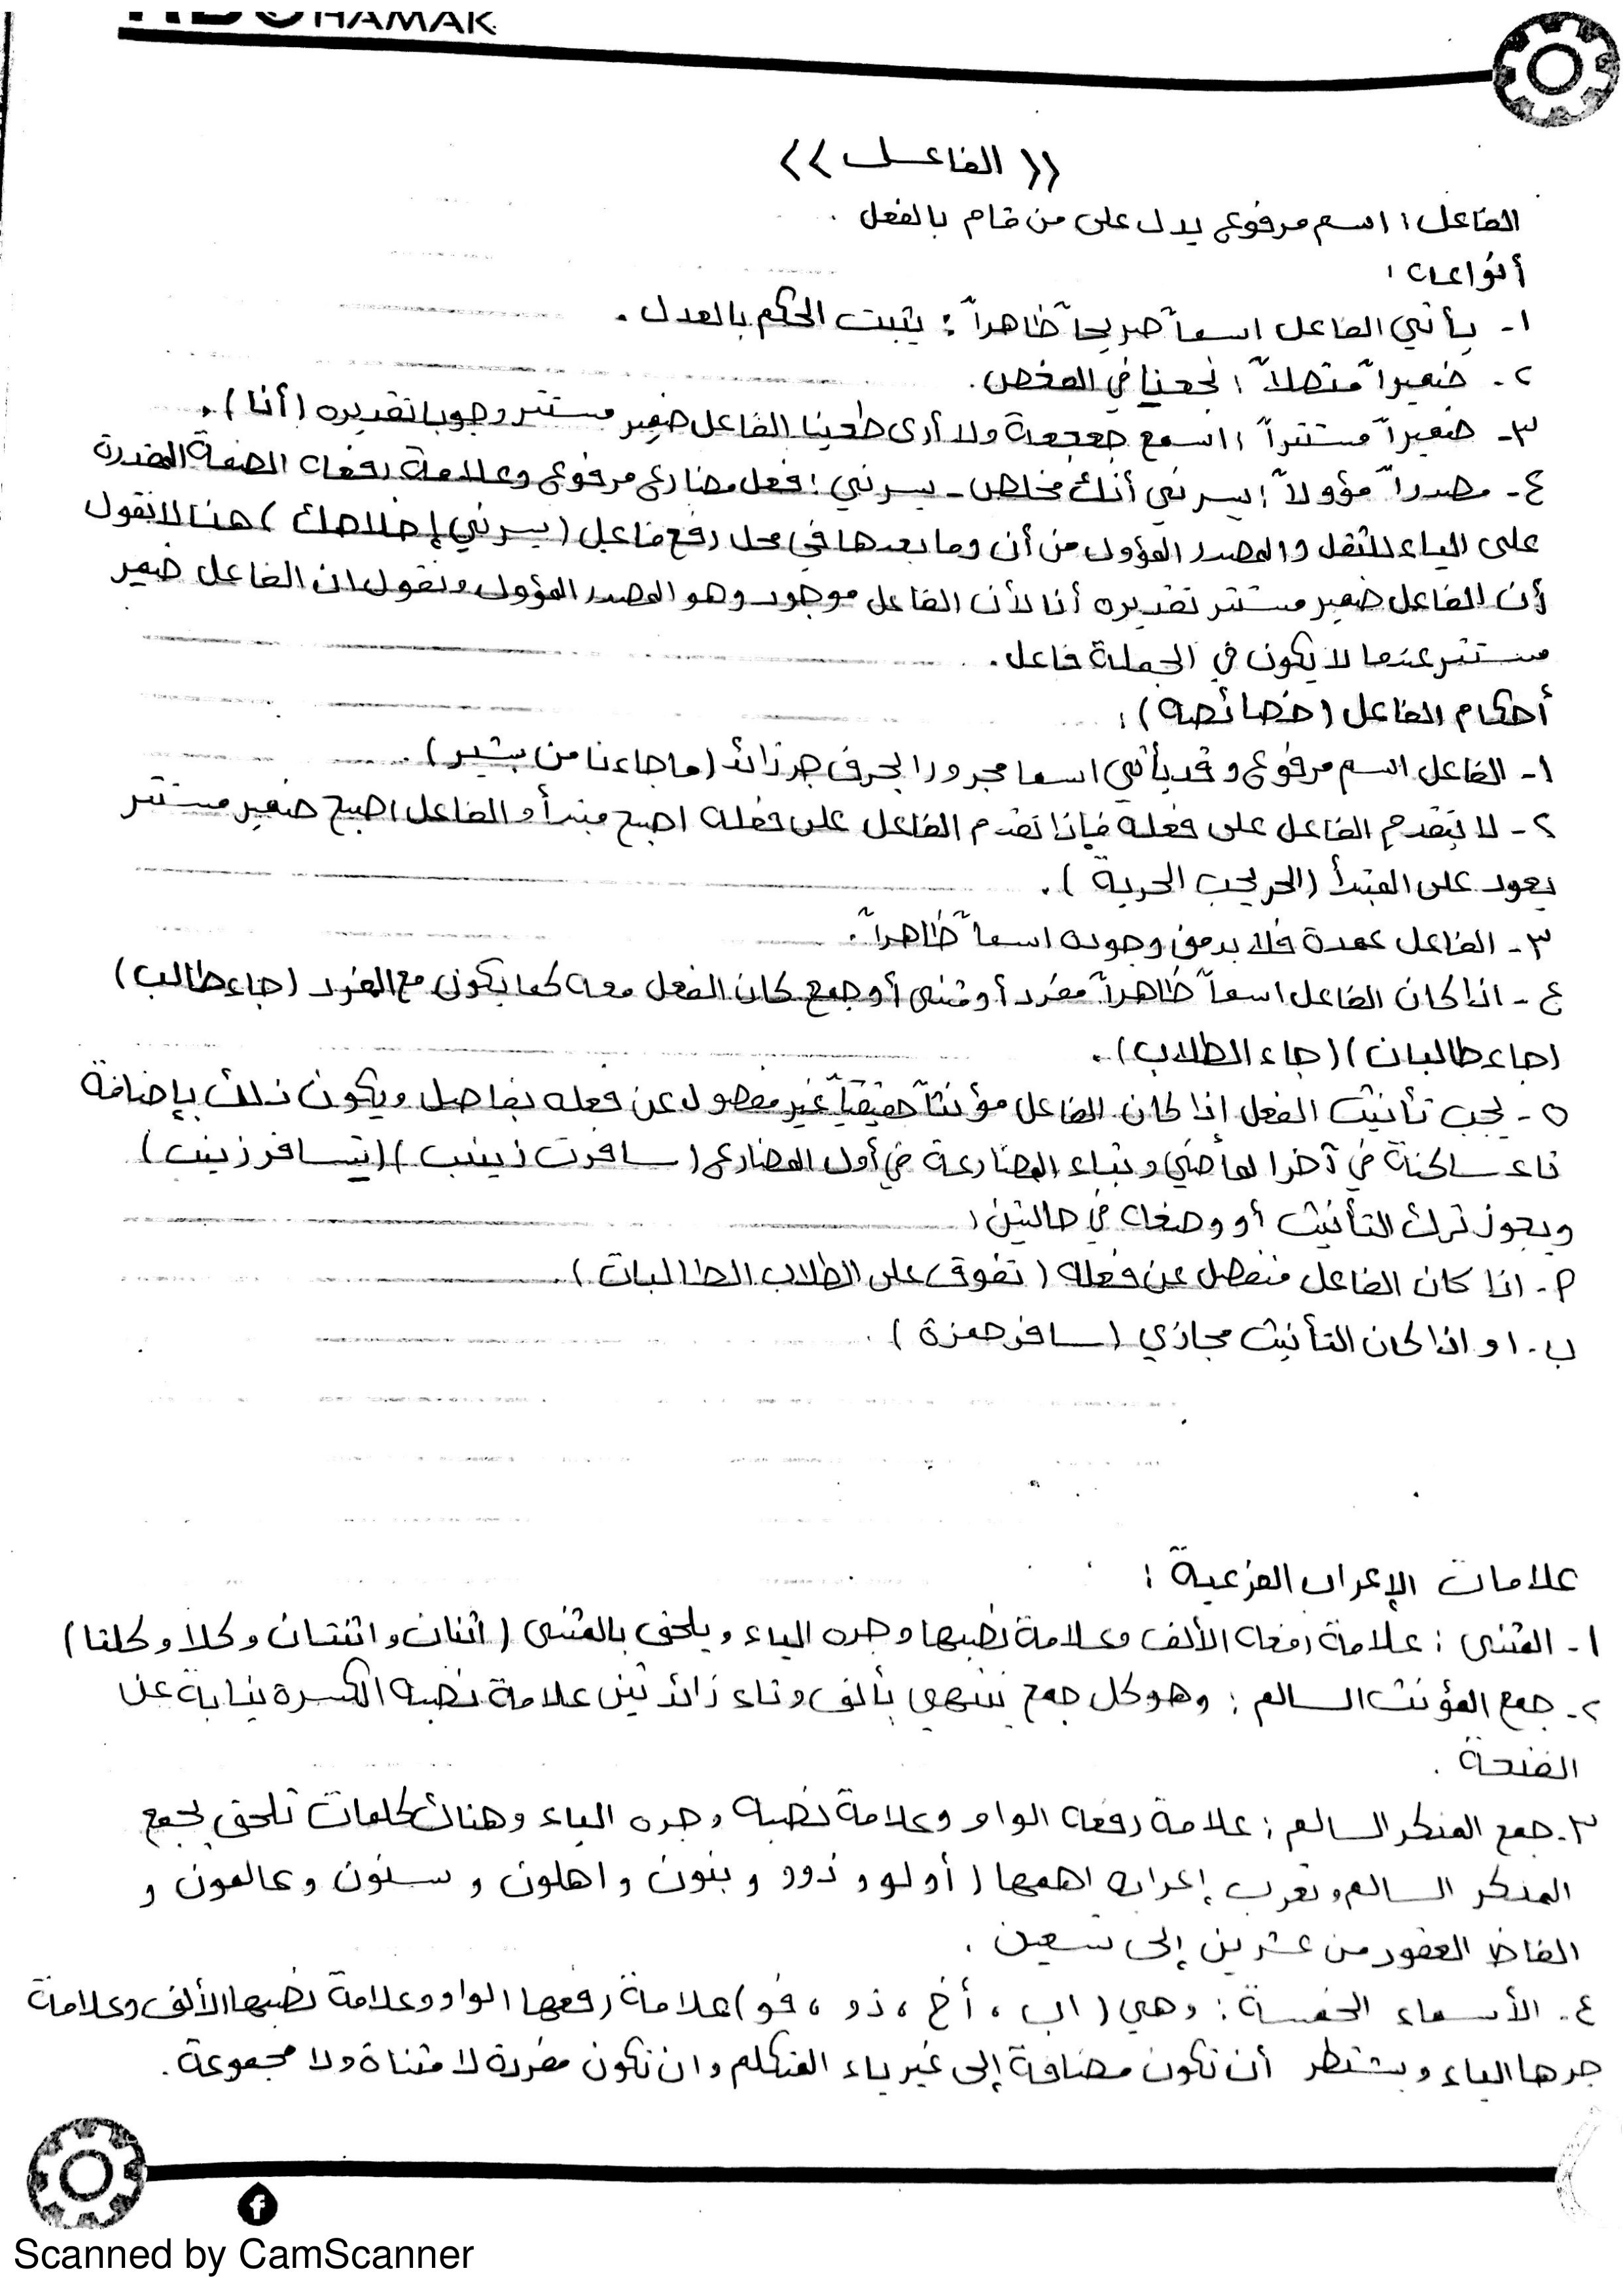 HAMAK
« الفاعل »
الفاعل: اسم مرفوع يدل على من قام بالفعل.
أنواعه:
١- يأتي الفاعل اسماً صريحاً ظاهراً: يثبت الحكم بالعدل.
٢- ضميراً متصلاً: نجحنا في الفحص.
٣- ضميراً مستتراً: اسمع جعجعة ولا أرى طحينا الفاعل ضمير مستتر وجوبا تقديره (أنا).
٤- مصدراً مؤولاً: يسرني أنك مخلص - يسرني: فعل مضارع مرفوع وعلامة رفعه الضمة المقدرة
على الياء للثقل والمصدر المؤول من أن وما بعدها في محل رفع فاعل (يسرني إخلاصك) هنا لا نقول
أن الفاعل ضمير مستتر تقديره أنا لأن الفاعل موجود وهو المصدر المؤول ونقول ان الفاعل ضمير
مستتر عندما لا يكون في الجملة فاعل.
أحكام الفاعل (خصائصه):
١- الفاعل اسم مرفوع وقد يأتي اسما مجرورا بحرف جر زائد (ما جاءنا من بشير).
٢- لا يتقدم الفاعل على فعله فإذا تقدم الفاعل على فعله اصبح مبتدأ والفاعل اصبح ضمير مستتر
يعود على المبتدأ (الحر يحب الحرية).
٣- الفاعل عمدة فلا بد من وجوده اسماً ظاهراً.
٤- اذا كان الفاعل اسماً ظاهراً مفرد أو مثنى أو جمع كان الفعل معه كما يكون مع المفرد (جاء طالب)
(جاء طالبان) (جاء الطلاب).
٥- يجب تأنيث الفعل اذا كان الفاعل مؤنثاً حقيقياً غير مفصول عن فعله بفاصل ويكون ذلك بإضافة
تاء ساكنة في آخر الماضي وبتاء المضارعة في أول المضارع (سافرت زينب) (تسافر زينب)
ويجوز ترك التأنيث أو وضعه في حالتين:
P- اذا كان الفاعل منفصل عن فعله (تفوق على الطلاب الطالبات).
ب- او اذا كان التأنيث مجازي (سافر حمزة).
علامات الإعراب الفرعية:
١- المثنى: علامة رفعه الألف وعلامة نصبها وجره الياء ويلحق بالمثنى (اثنان واثنتان وكلا وكلتا)
٢- جمع المؤنث السالم: وهو كل جمع ينتهي بألف وتاء زائدتين علامة نصبه الكسرة نيابة عن
الفتحة.
٣- جمع المذكر السالم: علامة رفعه الواو وعلامة نصبه وجره الياء وهناك كلمات تلحق بجمع
المذكر السالم وتعرب إعرابه اهمها (أولو و ذوو و بنون و اهلون و سنون و عالمون و
الفاظ العقود من عشرين إلى تسعين.
٤- الأسماء الخمسة: وهي (اب، أخ، ذو، فو) علامة رفعها الواو وعلامة نصبها الألف وعلامة
جرها الياء ويشتطر أن تكون مضافة إلى غير ياء المتكلم وان تكون مفردة لا مثناة ولا مجموعة.
f
Scanned by CamScanner